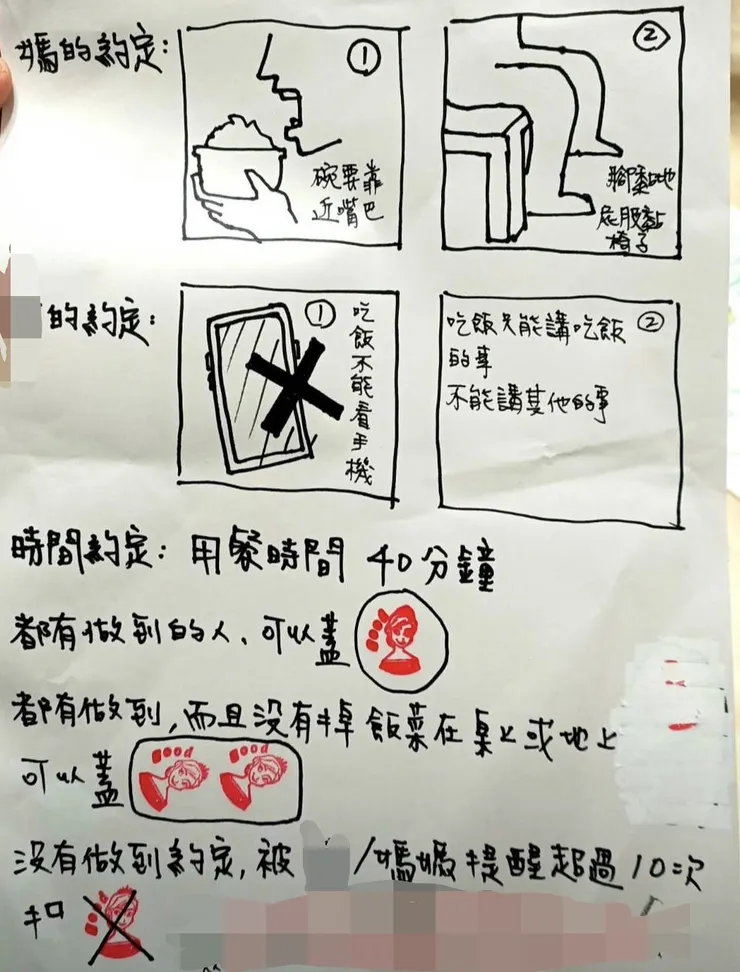 媽的約定:
①
碗要靠
近嘴巴
②
腳黏地
屁股黏
椅子
的約定:
①
吃飯不能看手機
②
吃飯只能講吃飯
的事
不能講其他的事
時間約定: 用餐時間 40分鐘
都有做到的人, 可以蓋
都有做到, 而且沒有掉飯菜在桌上或地上
可以蓋
good
good
沒有做到約定, 被 /媽媽提醒超過10次
扣